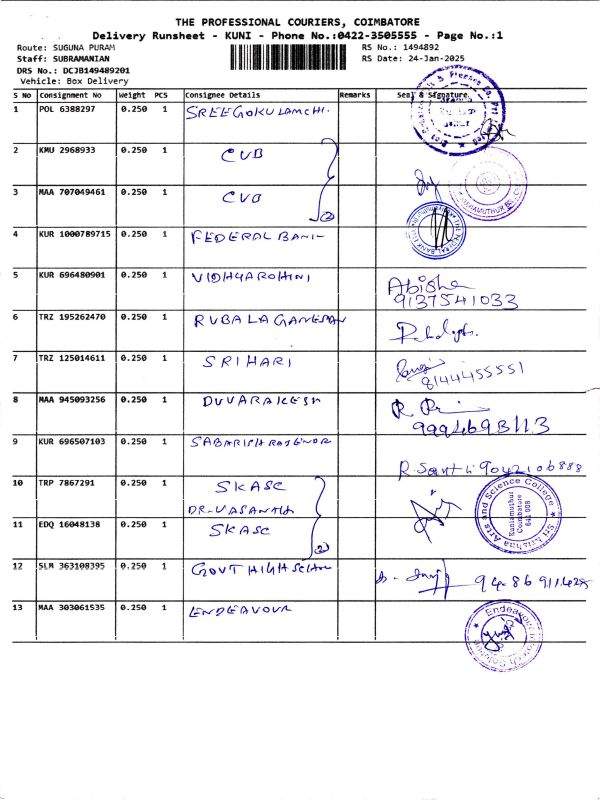 THE PROFESSIONAL COURIERS, COIMBATORE
Delivery Runsheet - KUNI - Phone No.:0422-3505555 - Page No.:1
Route: SUGUNA PURAM RS No.: 1494892
Staff: SUBRAMANIAN RS Date: 24-Jan-2025
DRS No.: DCJB149489201
Vehicle: Box Delivery
S No Consignment No Weight PCS Consignee Details Remarks Seal & Signature
1 POL 6388297 0.250 1 SREEGOKULAMCHI.
2 KMU 2968933 0.250 1 CUB
3 MAA 707049461 0.250 1 CUB
(2)
4 KUR 1000789715 0.250 1 FEDERAL BANK
5 KUR 696480901 0.250 1 VIDHYAROHINI Abisha
9137541033
6 TRZ 195262470 0.250 1 RUBALAGANESAN
7 TRZ 125014611 0.250 1 SRIHARI
8144455551
8 MAA 945093256 0.250 1 DUVARAKESH R
9 KUR 696507103 0.250 1
R. Santhi 9042106888
10 TRP 7867291 0.250 1 SKASC
DR.VASANTHA
11 EDQ 16048138 0.250 1 SKASC
(2)
Sri Krishna Arts and Science College
Kuniamuthur
Coimbatore
641 008
12 SLM 363108395 0.250 1 GOVT HIGH SCHOOL
13 MAA 303061535 0.250 1 ENDEAVOUR
Endeavour